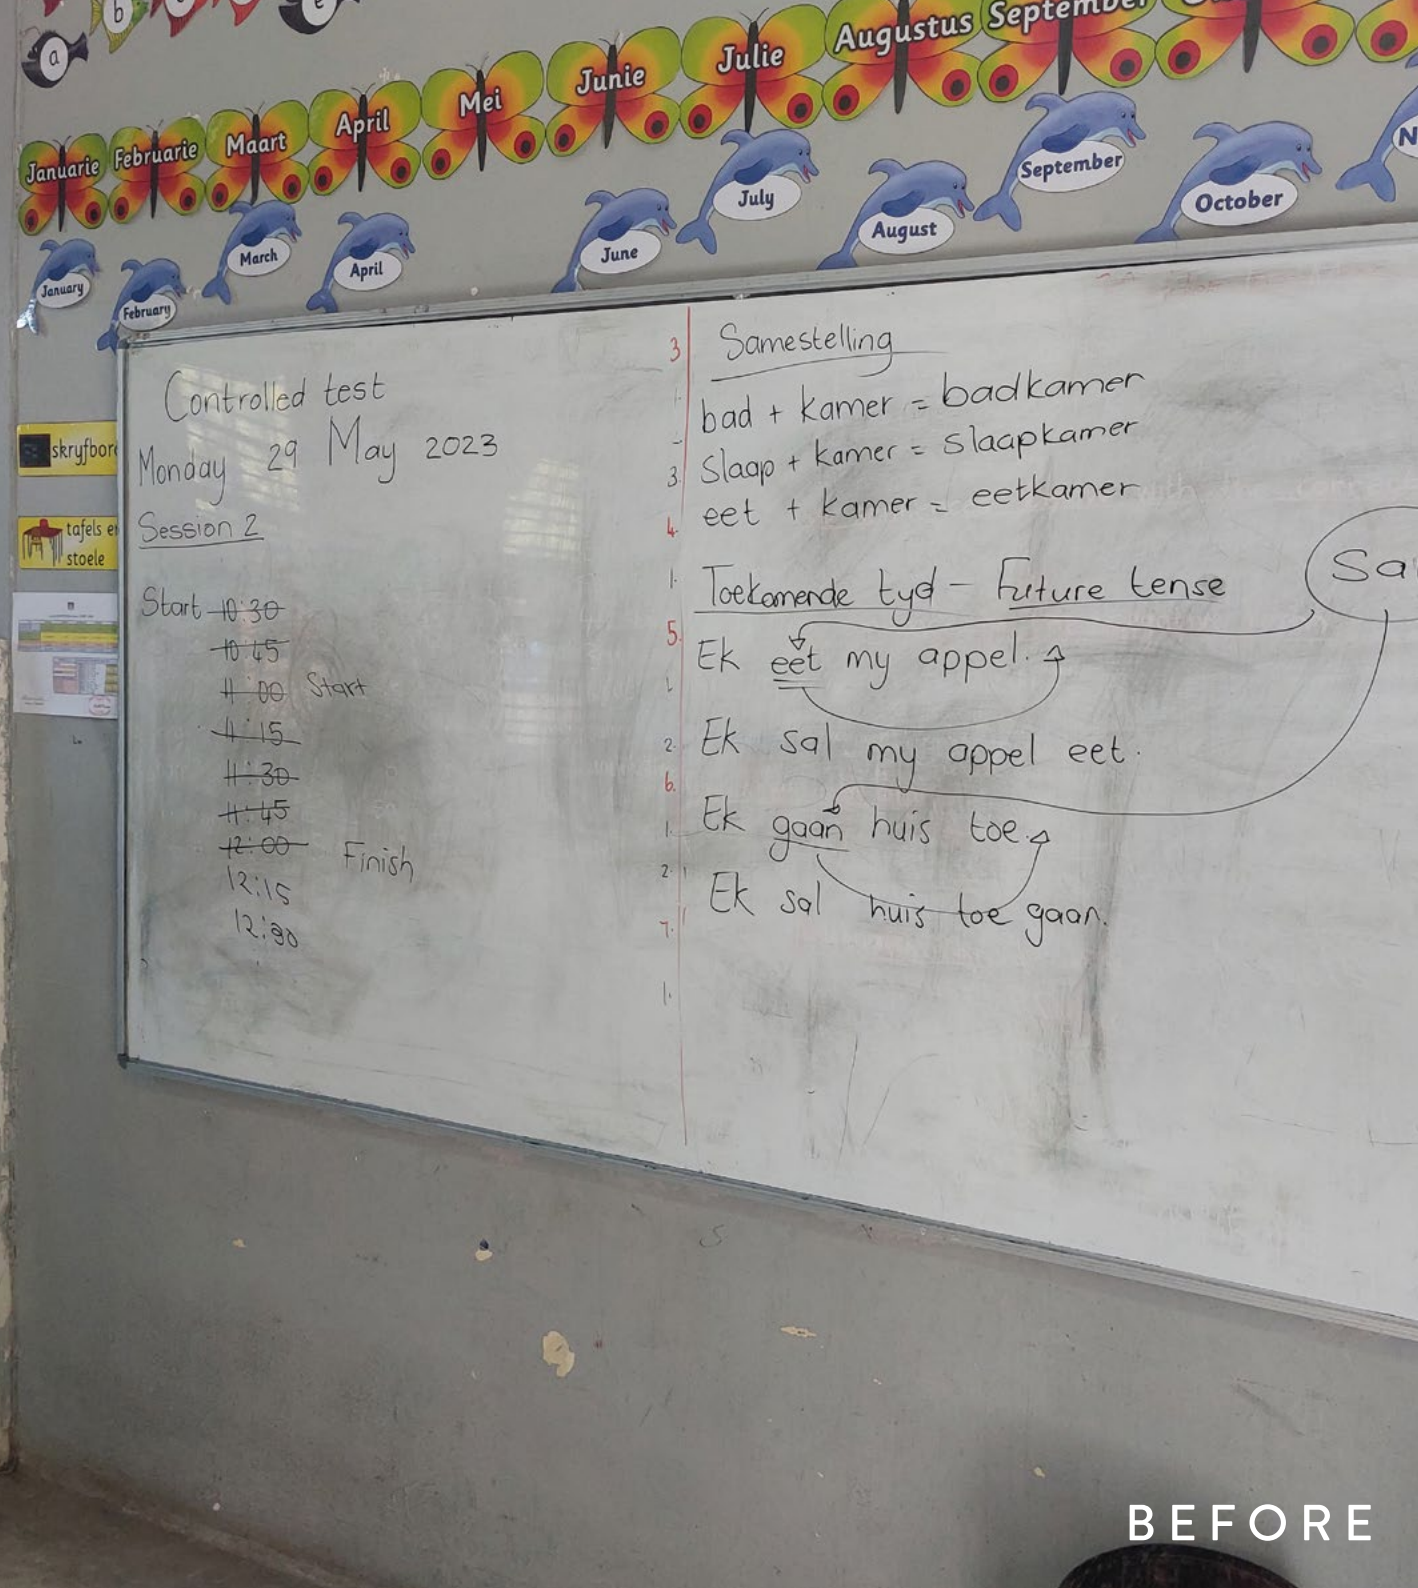 a
b
e
Januarie
Februarie
Maart
April
Mei
Junie
Julie
Augustus
September
January
February
March
April
June
July
August
September
October
N
skryfbor
tafels en
stoele
Controlled test
Monday 29 May 2023
Session 2
Start 10:30
10:45
11:00 Start
11:15
11:30
11:45
12:00
Finish
12:15
12:30
3
3.
4.
1.
5.
1.
2.
6.
1.
2.
7.
1.
Samestelling
bad + kamer = badkamer
Slaap + kamer = slaapkamer
eet + kamer = eetkamer
Toekomende tyd - Future tense
Sa
Ek eet my appel.
Ek sal my appel eet.
Ek gaan huis toe.
Ek sal huis toe gaan.
BEFORE